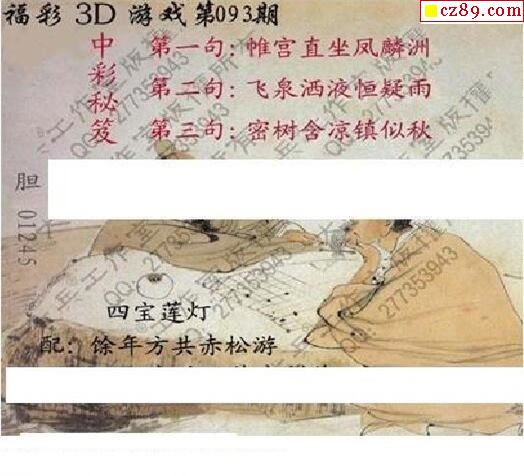 福彩 3D 游戏第093期
cz89.com
中彩秘笈
第一句:帷宫直坐凤麟洲
第二句:飞泉洒液恒疑雨
第三句:密树含凉镇似秋
胆 01245
四宝莲灯
配:馀年方共赤松游
工作室版权所有
QQ:277353943